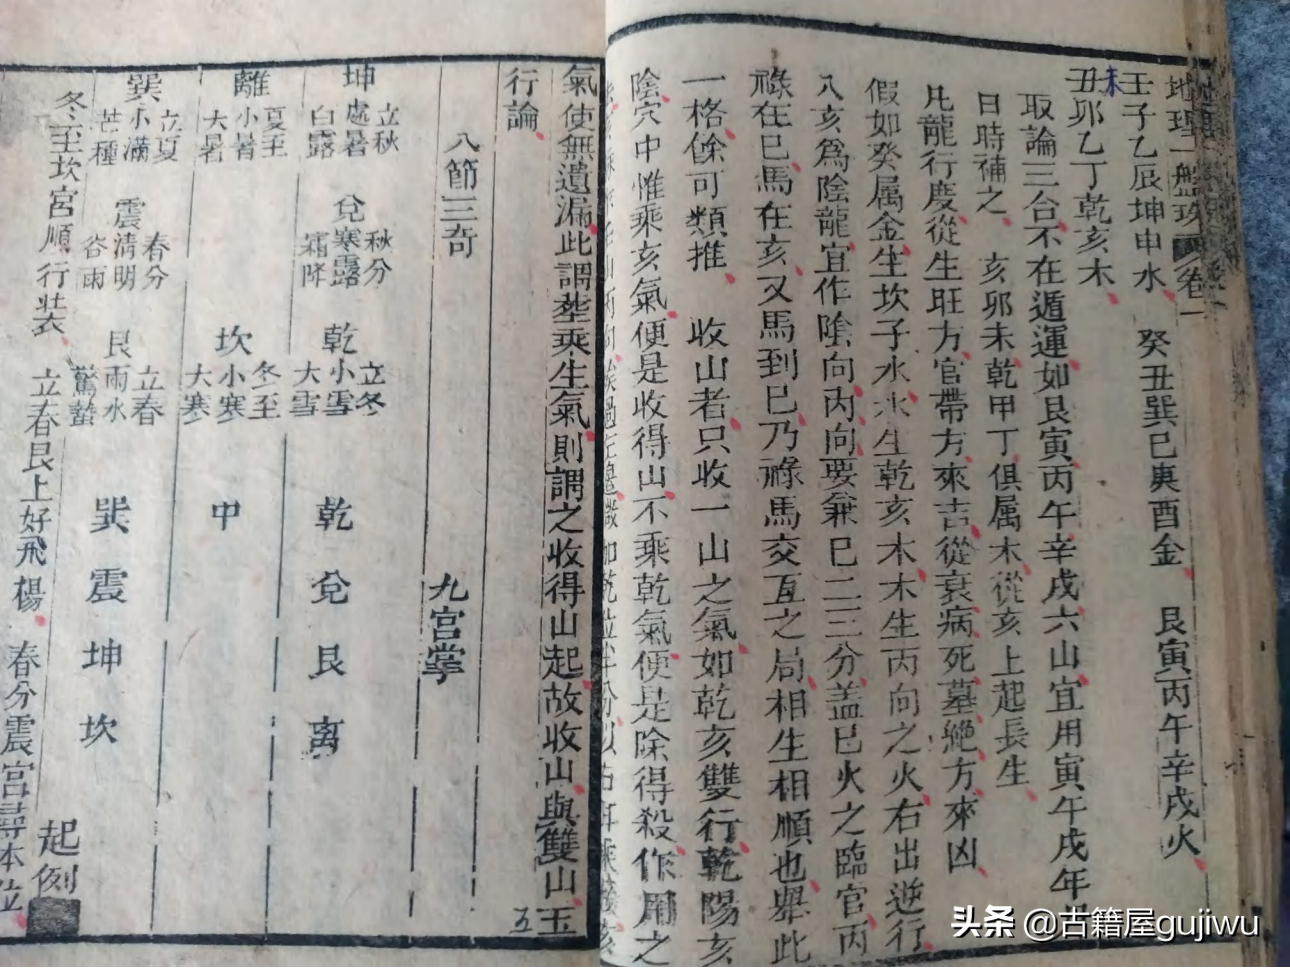 地理一盤珠 卷一
壬子乙辰坤申水 癸丑巽巳庚酉金 艮寅丙午辛戌火
未
丑卯乙丁乾亥木
取論三台不在遁運如艮寅丙午辛戌六山宜用寅午戌年
日時補之 亥卯未乾甲丁俱属木從亥上起長生
凡龍行度從生旺方官帶方來吉從衰病死墓絶方來凶
假如癸属金生坎子水水生乾亥木木生丙向之火右出逆行
八亥為陰龍宜作陰向丙向要兼巳二三分盖巳火之臨官丙
祿在巳馬在亥又馬到巳乃祿馬交互之局相生相順也舉此
一格餘可類推 收山者只收一山之氣如乾亥雙行乾陽亥
陰穴中惟乘亥氣便是收得山不乘乾氣便是除得殺作用之
氣使無遺漏此謂塟乘生氣則謂之收得山起故收山與雙山玉
行論
五
八節三奇 九宮掌
坤 立秋 處暑 白露 兌 秋分 寒露 霜降 乾 立冬 小雪 大雪 乾兌艮离
離 夏至 小暑 大暑 坎 冬至 小寒 大寒 中
巽 立夏 小滿 芒種 震 春分 清明 谷雨 艮 立春 雨水 驚蟄 巽震坤坎
起例
冬至坎宮順行裝 立春艮上好飛楊 春分震宮尋本位
头条 @古籍屋gujiwu